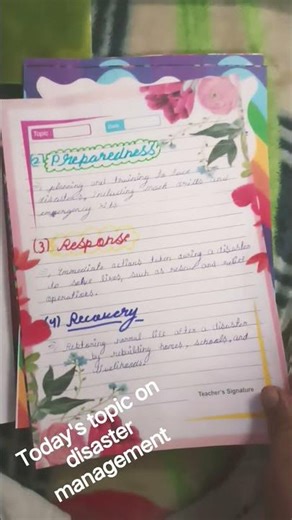 Topic
Date
(2) Preparedness
planning and training to face
disasters, including mock drills and
emergency kits.
(3) Response
Immediate actions taken during a disaster
to solve lives, such as rescue and relief
operations.
(4) Recovery
Restoring normal life after a disaster
by rebuilding homes, schools, and
livelihoods.
Teacher's Signature
Today's topic on
disaster
management